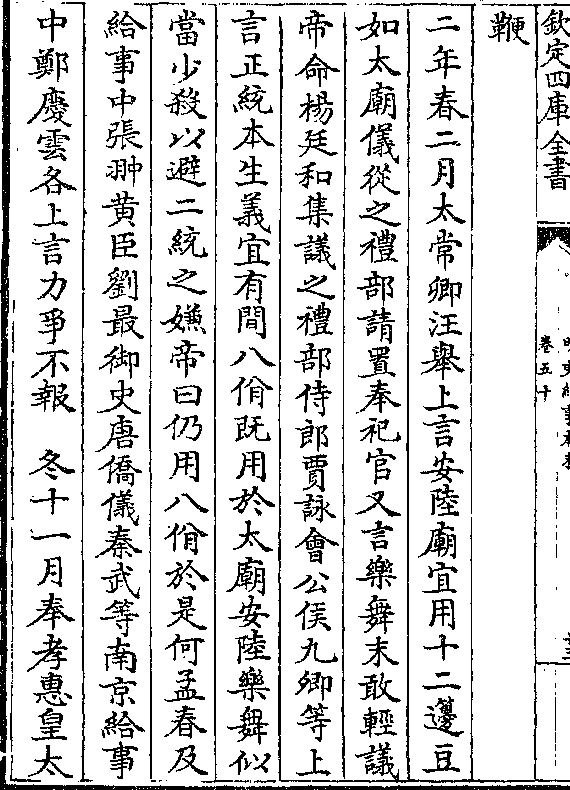 欽定四庫全書
卷五十
鞭
二年春二月太常卿汪舉上言安陸廟宜用十二籩豆
如太廟儀從之禮部請置奉祀官又言樂舞未敢輕議
帝命楊廷和集議之禮部侍郎賈詠會公侯九卿等上
言正統本生義宜有間八佾既用於太廟安陸樂舞似
當少殺以避二統之嫌帝曰仍用八佾於是何孟春及
給事中張翀黄臣劉最御史唐僑儀秦武等南京給事
中鄭慶雲各上言力爭不報　冬十一月奉孝惠皇太